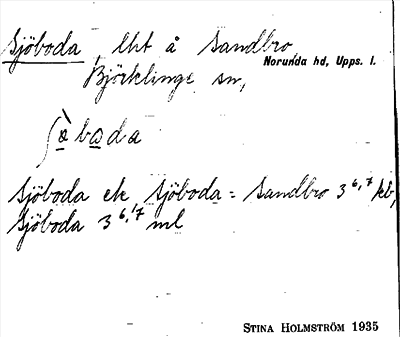 Sjöboda, lht å Sandbro,
Norunda hd, Upps. l.
Björklinge sn,
ʃö̀bωda
Sjöboda ek, Sjöboda = Sandbro 3 6,7 kb,
Sjöboda 3 6,17 ml
STINA HOLMSTRÖM 1935